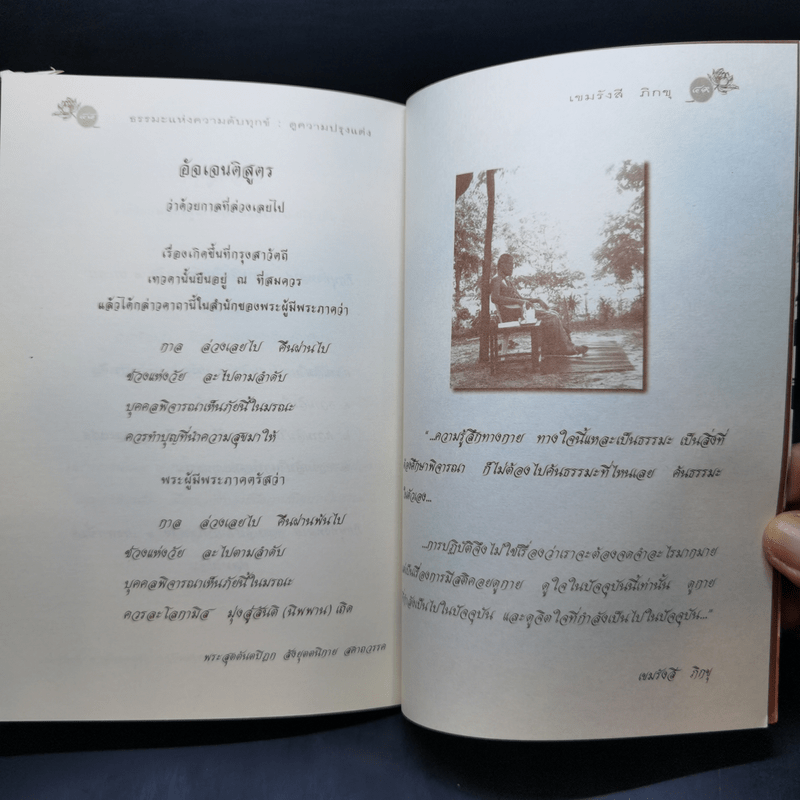 ๔๘
ธรรมะแห่งความดับทุกข์ : ดูความปรุงแต่ง
อัจเจนติสูตร
ว่าด้วยกาลที่ล่วงเลยไป
เรื่องเกิดขึ้นที่กรุงสาวัตถี
เทวดานั้นยืนอยู่ ณ ที่สมควร
แล้วได้กล่าวคาถานี้ในสำนักของพระผู้มีพระภาคว่า
กาล ล่วงเลยไป คืนผ่านไป
ช่วงแห่งวัย ละไปตามลำดับ
บุคคลพิจารณาเห็นภัยนี้ในมรณะ
ควรทำบุญที่นำความสุขมาให้
พระผู้มีพระภาคตรัสว่า
กาล ล่วงเลยไป คืนผ่านพ้นไป
ช่วงแห่งวัย ละไปตามลำดับ
บุคคลพิจารณาเห็นภัยนี้ในมรณะ
ควรละโลกามิส มุ่งสู่สันติ (นิพพาน) เถิด
พระสุตตันตปิฎก สังยุตตนิกาย สคาถวรรค
เขมรังสี ภิกขุ
๔๙
"...ความรู้สึกทางกาย ทางใจนี้แหละเป็นธรรมะ เป็นสิ่งที่
ศึกษาพิจารณา ก็ไม่ต้องไปค้นธรรมะที่ไหนเลย ค้นธรรมะ
ตัวเอง...
...การปฏิบัติจึงไม่ใช่เรื่องว่าเราจะต้องจดจำอะไรมากมาย
เป็นเรื่องการมีสติคอยดูกาย ดูใจในปัจจุบันนี้เท่านั้น ดูกาย
กำลังเป็นไปในปัจจุบัน และดูจิตใจที่กำลังเป็นไปในปัจจุบัน..."
เขมรังสี ภิกขุ